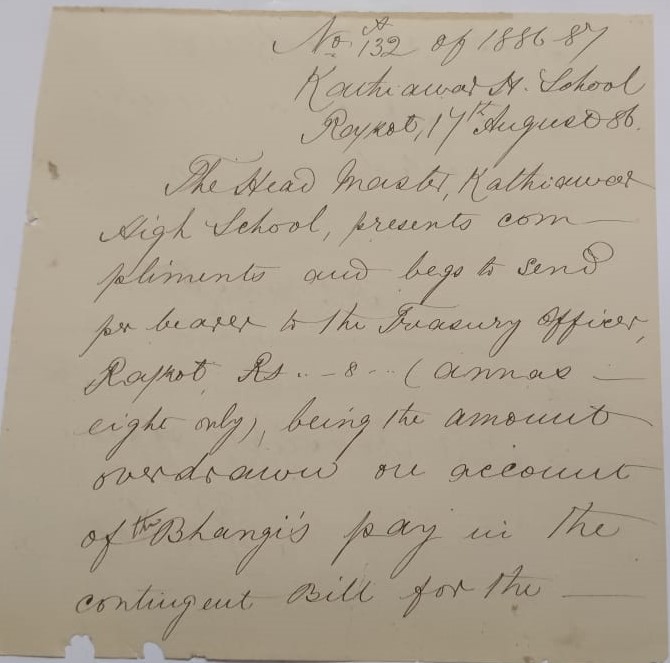 No. A 132 of 1886 87
Kathiawar H. School
Rajkot, 17th August 86.
The Head Master, Kathiawar
High School, presents com—
pliments and begs to send
per bearer to the Treasury Officer,
Rajkot, Rs. .. — 8 — .. (annas —
eight only), being the amount
overdrawn on account
of the Bhangi's pay in the
contingent Bill for the —